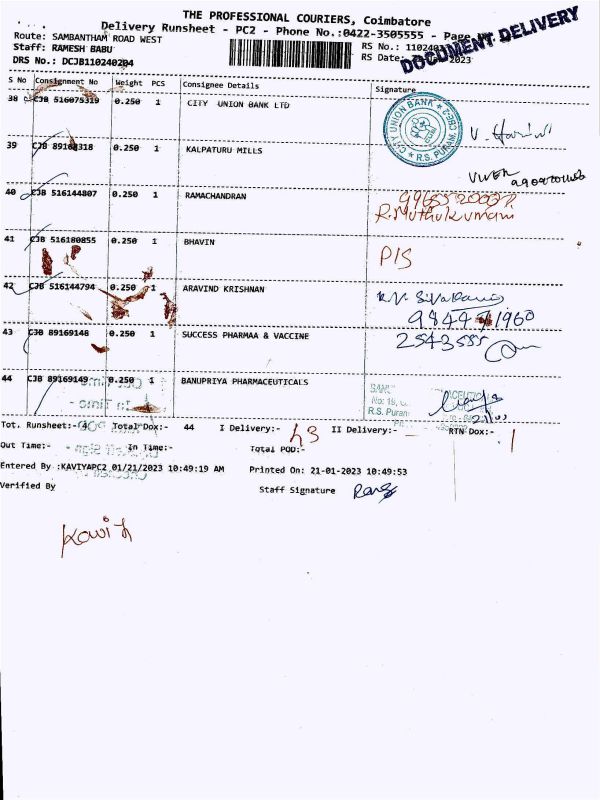 THE PROFESSIONAL COURIERS, Coimbatore
Delivery Runsheet - PC2 - Phone No.:0422-3505555 - Page
DOCUMENT DELIVERY
Route: SAMBANTHAM ROAD WEST
Staff: RAMESH BABU
DRS No.: DCJB110240204
RS No.: 110240
RS Date: 2023
S No Consignment No Weight PCS Consignee Details Signature
38 CJB 516075319 0.250 1 CITY UNION BANK LTD
CITY UNION BANK R.S. PURAM
39 CJB 318 0.250 1 KALPATURU MILLS
40 CJB 516144807 0.250 1 RAMACHANDRAN
R.Muthukumari
41 CJB 516180855 0.250 1 BHAVIN
P/S
42 CJB 516144794 0.250 1 ARAVIND KRISHNAN
43 CJB 89169148 0.250 1 SUCCESS PHARMAA & VACCINE
2543555
44 CJB 89169149 0.250 1 BANUPRIYA PHARMACEUTICALS
R.S. Puram
Tot. Runsheet:- 4 Total Dox:- 44 I Delivery:- 43 II Delivery:- - RTN Dox:- 1
Out Time:- In Time:- Total POD:-
Entered By :KAVIYAPC2 01/21/2023 10:49:19 AM Printed On: 21-01-2023 10:49:53
Verified By Staff Signature